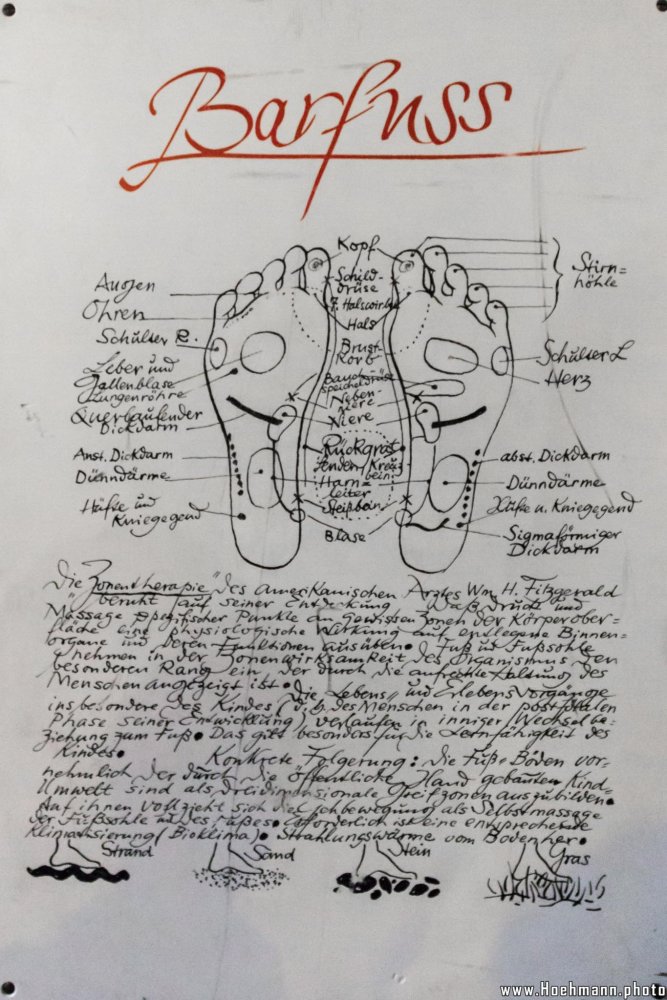 Barfuss
Kopf
Stirn=
höhle
Schild-
drüse
7. Halswirbel
Hals
Augen
Ohren
Schulter R.
Brust-
korb
Schulter L
Leber und
Gallenblase
Herz
Bauch
speicheldrüse
Lungenröhre
Neben-
niere
Querlaufender
Dickdarm
Niere
Rückgrat
Anst. Dickdarm
abst. Dickdarm
Lenden/Kreuz
bein
Dünndärme
Harn-
leiter
Dünndärme
Steißbein
Hüfte und
Kniegegend
Hüfte u. Kniegegend
Blase
Sigmaförmiger
Dickdarm
Die „Zonentherapie" des amerikanischen Arztes Wm. H. Fitzgerald
beruht auf seiner Entdeckung daß Druck und
Massage spezifischer Punkte an gewissen Zonen der Körperober=
fläche eine physiologische Wirkung auf entlegene Binnen=
organe und deren Funktionen ausüben. Fuß und Fußsohle
nehmen in der Zonenwirksamkeit des Organismus den
besonderen Rang ein der durch die aufrechte Haltung des
Menschen angezeigt ist. Die Lebens= und Erlebensvorgänge
insbesondere des Kindes (d.h. des Menschen in der postnatalen
Phase seiner Entwicklung) verlaufen in inniger Wechselbe=
ziehung zum Fuß. Das gilt besonders für die Lernfähigkeit des
Kindes. Konkrete Folgerung: die Fuß=Böden vor-
nehmlich der durch die öffentliche Hand gebauten Kind=
Umwelt sind als dreidimensionale Greifzonen auszubilden.
Auf ihnen vollzieht sich die Gehbewegung als Selbstmassage
der Fußsohle und des Fußes. Erforderlich ist eine entsprechende
Klimatisierung (Bioklima). Strahlungswärme vom Boden her.
Strand
Sand
Stein
Gras
www.Hoehmann.photo